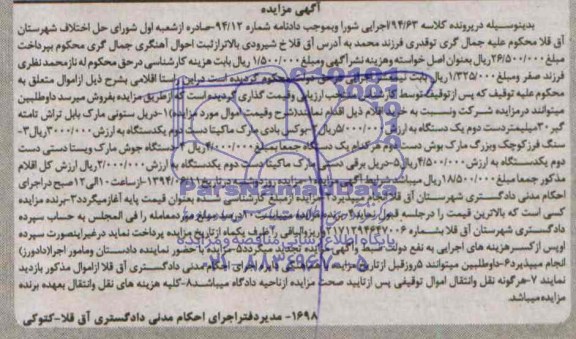 آگهی مزایده
بدینوسیله درپرونده کلاسه ۹۴/۶۳/اجرایی شورا وبموجب دادنامه شماره ۹۴/۱۲-صادره ازشعبه اول شورای حل اختلاف شهرستان
آق قلا محکوم علیه جمال گری توقدری فرزند محمد به آدرس آق قلاخ شیرودی بالاترازثبت احوال آهنگری جمال گری محکوم بپرداخت
۲۶/۵۰۰/۰۰۰ریال بعنوان اصل خواسته وهزینه نشر آگهی ومبلغ ۱/۵۰۰/۰۰۰ ریال بابت هزینه کارشناسی درحق محکوم له تازمحمد نظری
فرزند صفر ومبلغ ۱/۳۲۵/۰۰۰ریال بابت نیم محکوم گردیده است دراین راستا اقلامی بشرح ذیل ازاموال متعلق به
محکوم علیه توقیف که پس ازتوقیف توسط ارزیابی وقیمت گذاری گردیده است که ازطریق مزایده بفروش میرسد داوطلبین
میتوانند درمزایده شرکت ونسبت به خرید اقلام ذیل اقدام نمایند(شرح وقیمت اموال مورد مزایده)۱-دریل ستونی مارک بابل تراش تامته
گیر۳۰میلیمتردست دوم یک دستگاه به ارزش ۵/۰۰۰/۰۰۰ریال بادی مارک ماکیتا دست دوم یکدستگاه به ارزش۳/۰۰۰/۰۰۰ریال۳-
سنگ فرزکوچک وبزرگ مارک بوش دست دوم هرکدام یک دستگاه جمعا مبلغ ۴/۰۰۰/۰۰۰ریال ۴-دستگاه جوش مارک ویستا دستی دست
دوم یکدستگاه به ارزش ۴/۵۰۰/۰۰۰ریال ۵-دریل برقی دستی مارک ماکیتا دست دوم یکدستگاه به ارزش ۲/۰۰۰/۰۰۰ریال ارزش کل اقلام
مذکور جمعا مبلغ ۱۸/۵۰۰/۰۰۰ریال میباشد شرایط مزایده روز ۱۳۹۴/۰۶/۱۱-ازساعت ۱۰الی۱۲صبح دراجرای
احکام مدنی دادگستری شهرستان آق قلا انجام میپذیرد مزایده ازمبلغ کارشناسی شده بعنوان قیمت پایه آغازمیگردد۳-برنده مزایده
کسی است که بالاترین قیمت را درجلسه قبول نماید برنده مزایده میبایست ۱۰درصد مبلغ موردمعامله را فی المجلس به حساب سپرده
دادگستری شهرستان آق قلا بشماره ۲۱۷۱۲۹۴۶۴۷۰۰۶واریز والباقی ظرف یکماه ازتاریخ مزایده پرداخت نماید درغیراینصورت سپرده
اوپس ازکسرهزینه های اجرایی به نفع دولت ضبط تجدید میگردد۵-مزایده باحضور نماینده دادستان ومامور اجرا(دادورز)
انجام میپذیرد۶-داوطلبین میتوانند ۵روزقبل ازتاریخ اجرای احکام مدنی دادگستری آق قلا ازاموال مذکور بازدید
نمایند ۷-هرگونه نقل وانتقال اموال توقیفی پس ازتایید صحت مزایده ازناحیه دادگاه میباشد۸-کلیه هزینه های نقل وانتقال بعهده برنده
مزایده میباشد.
۱۶۹۸- مدیردفتراجرای احکام مدنی دادگستری آق قلا-کتوکی
ParsNamadData
پایگاه اطلاع رسانی مناقصه و مزایده
۰۲۱-۸۸۳۴۹۶۷۰-۵